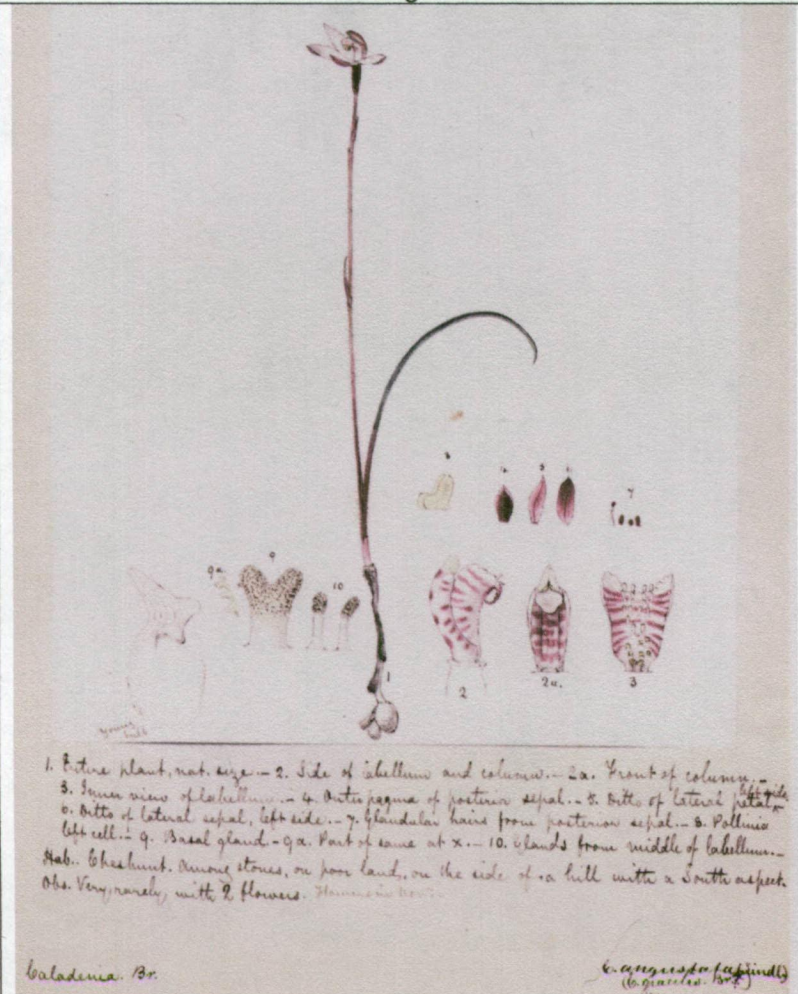 8
4
5
6
7
9a
9
10
1
2
2a.
3
young bulb
1. Entire plant, nat. size. — 2. Side of labellum and column. — 2a. Front of column. —
3. Inner view of labellum. — 4. Outer pagina of posterior sepal. — 5. Ditto of lateral petal, left side.
6. Ditto of lateral sepal, left side. — 7. Glandular hairs from posterior sepal. — 8. Pollinia
left cell. — 9. Basal gland — 9a. Part of same at x. — 10. Glands from middle of labellum. —
Hab. Cheshunt. Among stones, on poor land, on the side of a hill with a South aspect.
Obs. Very rarely, with 2 flowers. Flowers in Nov.
Caladenia. Br.
C. angustata (Lindl.)
(C. gracilis. Br.)